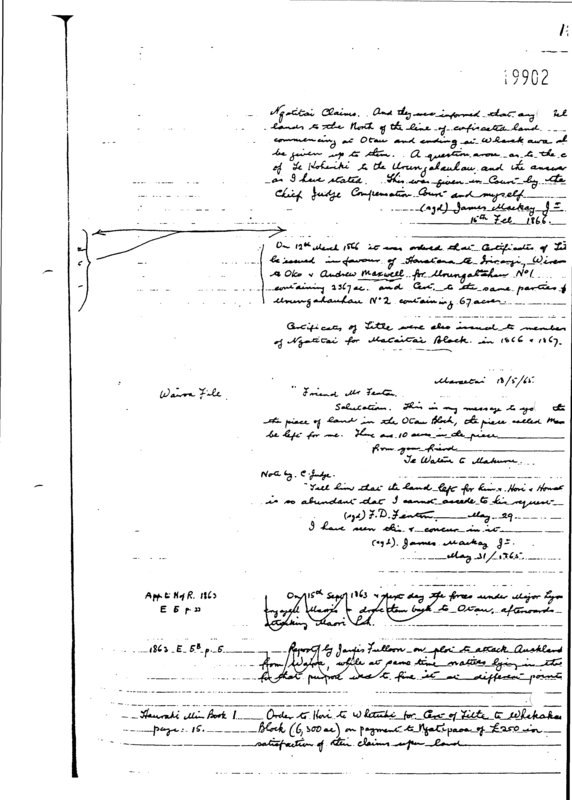 19902
Ngatitai Claims. And they were informed that any
lands to the North of the line of confiscated land
commencing at Otau and ending at
be given up to them. A question arose as to the
of Te Koheriki to the Urungahauhau and the answer
as I have stated. This was given in Court by the
Chief Judge Compensation Court and myself
(sgd) James Mackay Jr
15th Feb. 1866.
On 12th March 1866 it was ordered that Certificates of
be issued in favour of
& Andrew Maxwell for Urungahauhau No 1
containing 2367 ac. and Cert. to the same parties
Urungahauhau No 2 containing 67 acres
Certificates of Title were also issued to member
of Ngatitai for Mataitai Block in 1866 & 1867.
Maraetai 13/5/65
Wairoa File
"Friend Mr Fenton
Salutation. This is my message to
the piece of land in the Otau Block, the piece called
be left for me. There are 10 acres in the piece
from your friend
Te Watene
Note by C. Judge.
"Tell him that the land left for him & Hori &
is so abundant that I cannot accede to his request
(sgd) F.D. Fenton May 29.
I have seen this & concur in it
(sgd). James Mackay Jr
May 31/1865.
App. to H of R. 1863
E 5 p
On 15th Sept 1863 & next day the forces under Major
engaged Maoris & drove them back to Otau, afterwards
attacking Maori
1863 E. 5B p. 5
Report by James Fulloon on plot to attack Auckland
from Wairoa, while at same time natives lying in
for that purpose was to fire it at different points
Hauraki Min Book 1
page 15.
Order to Hori te Whetuki for Cert of Title to
Block (6,300 ac) on payment to Ngatipaoa of £200 in
satisfaction of their claims upon land